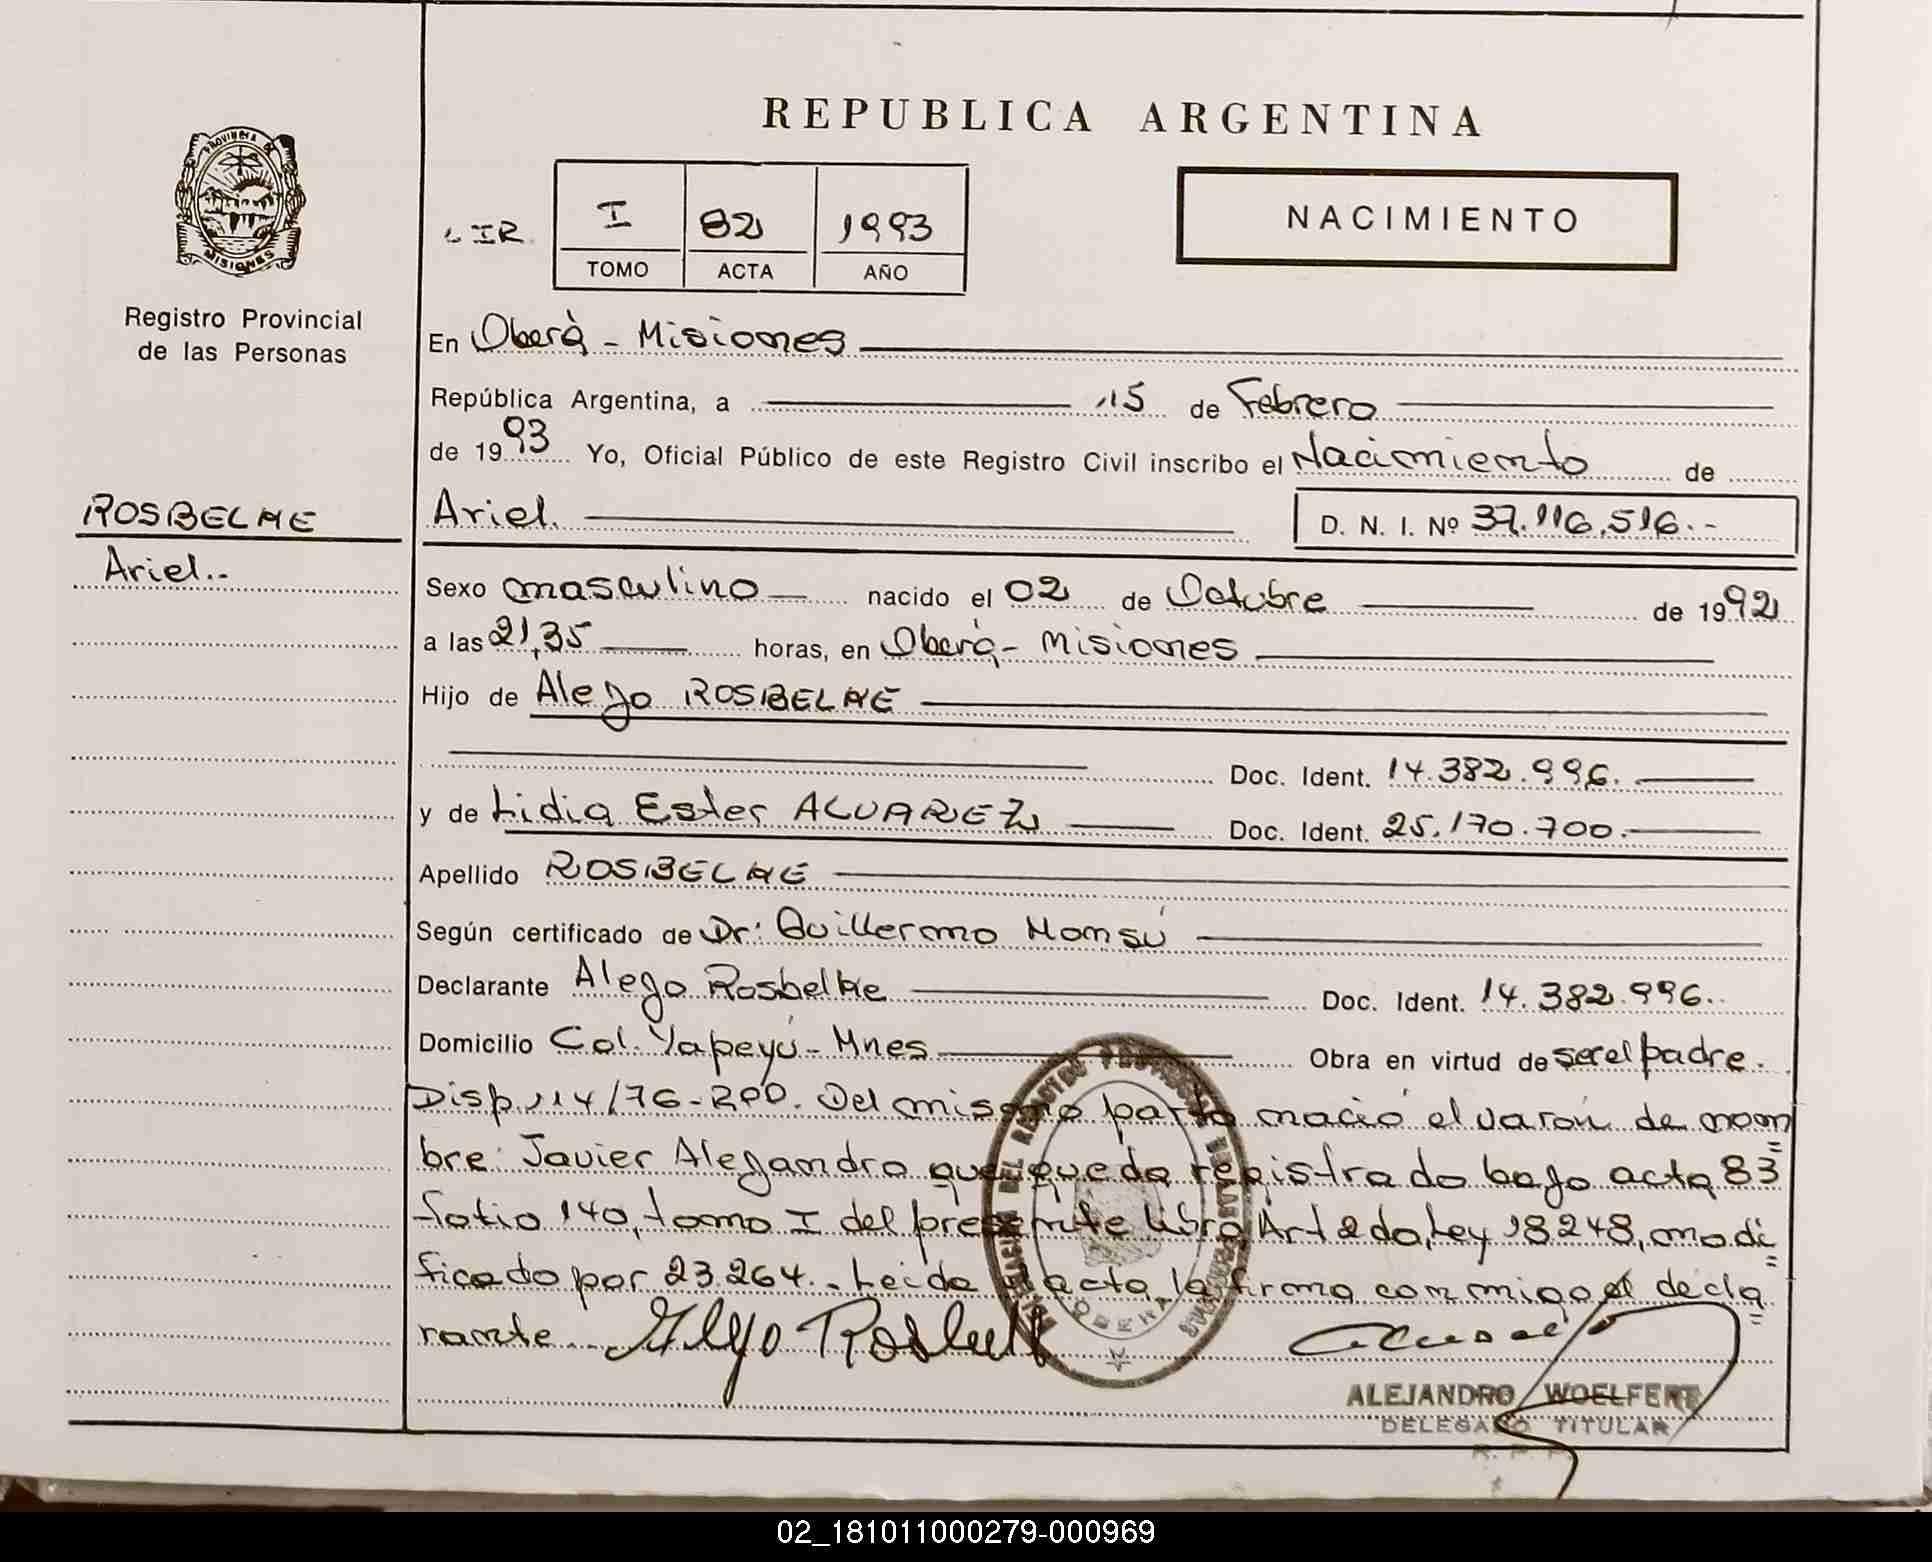 REPUBLICA ARGENTINA
PROVINCIA DE
MISIONES
Registro Provincial
de las Personas
I 82 1993
TOMO ACTA AÑO
NACIMIENTO
En Oberà - Misiones
República Argentina, a 15 de Febrero
de 1993 Yo, Oficial Público de este Registro Civil inscribo el Nacimiento de
ROSBELKE
Ariel.-
Ariel. D. N. I. Nº 37.116.516.-
Sexo masculino nacido el 02 de Octubre de 1992
a las 21,35 horas, en Oberà - Misiones
Hijo de Alejo ROSBELKE
Doc. Ident. 14.382.996.
y de Lidia Ester ALVAREZ Doc. Ident. 25.170.700.
Apellido ROSBELKE
Según certificado de Dr: Guillermo Monsú
Declarante Alejo Rosbelke Doc. Ident. 14.382.996.
Domicilio Col. Yapeyú - Mnes Obra en virtud de ser el padre.
Disp. 114/76-RPP. Del mismo parto nació el varón de nom
bre: Javier Alejandro que queda registrado bajo acta 83
folio 140, tomo I del presente libro Art 2do, Ley 18248, modi
ficado por 23.264.- Leida el acta, la firma conmigo el decla
rante.
ALEJANDRO WOELFERT
DELEGADO TITULAR
R. P. P.
02_181011000279-000969